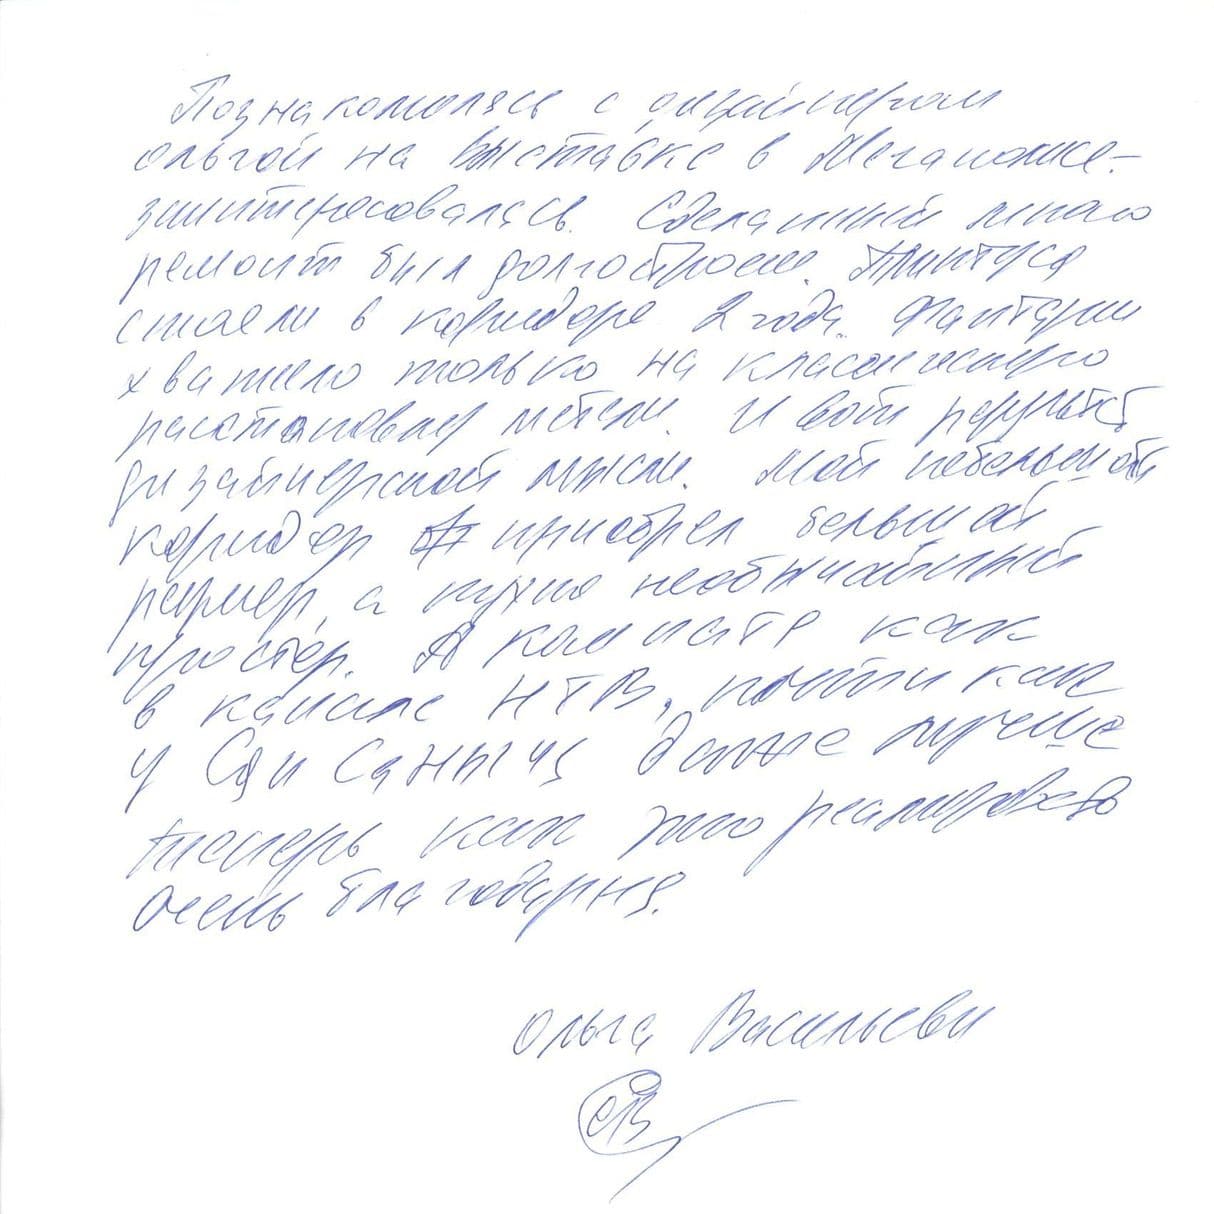 Познакомилась с дизайнером
Ольгой на выставке в Мегаполисе-
заинтересовалась. Сделанный мною
ремонт был долгостроем. Плинтуса
стояли в коридоре 2 года. Фантазии
хватило только на классическую
расстановку мебели. И вот результат
дизайнерской мысли. Мой небольшой
коридор приобрел большой
размер, а кухня необычайный
простор. А комнате как
в канале НТВ, почти как
у Сан Саныча даже лучше
теперь как это реализовать
очень благодарна.
Ольга Васильевн